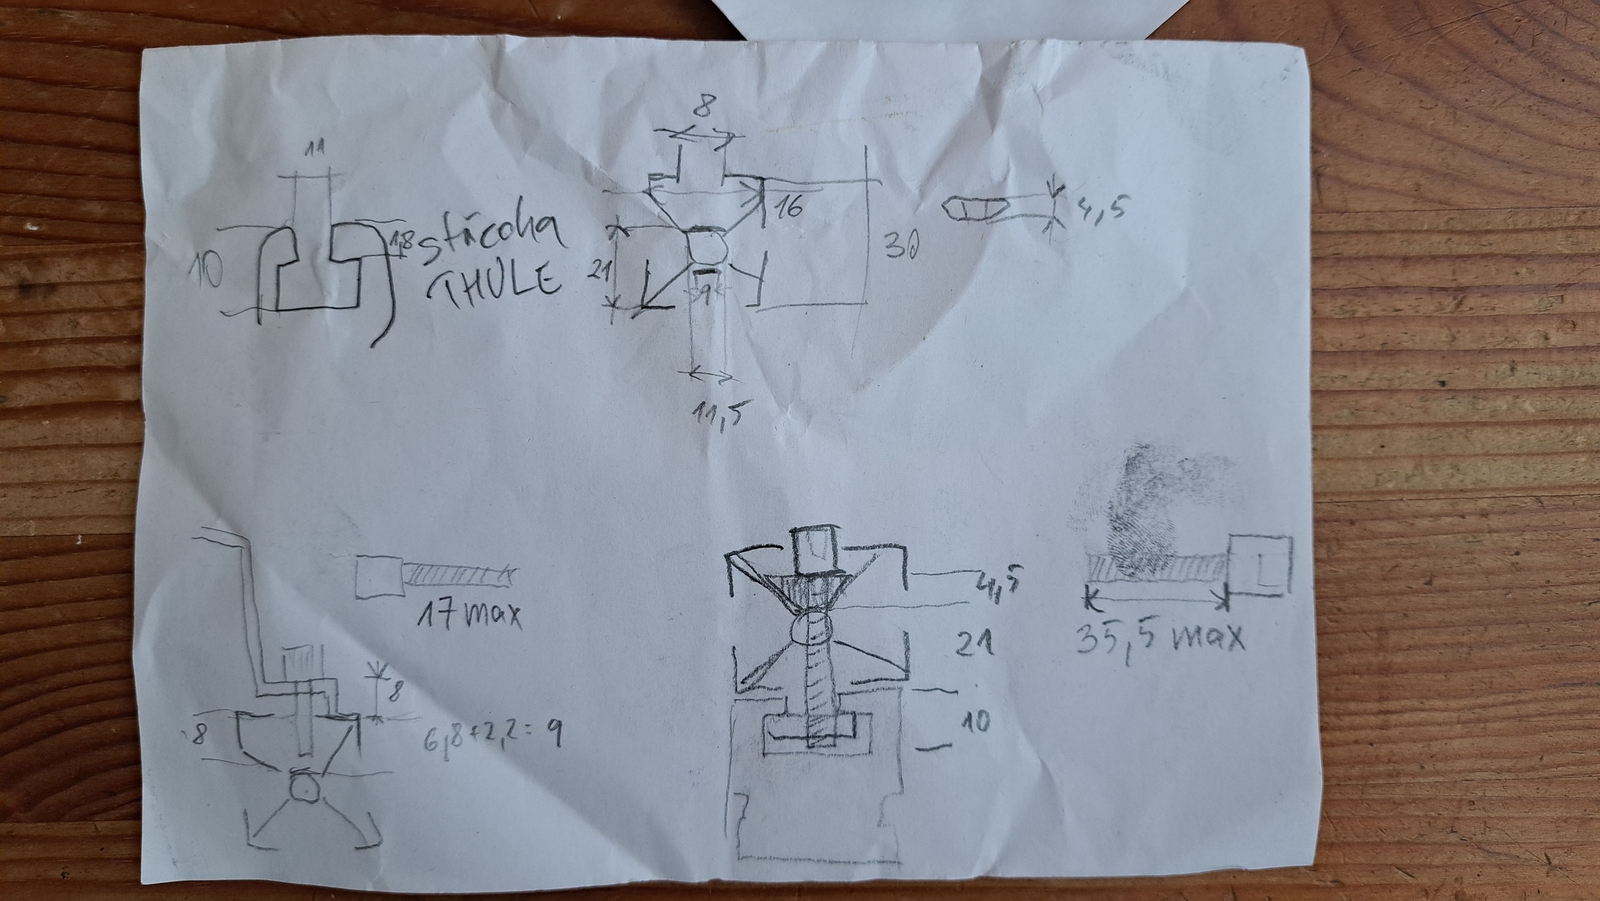 11
10
1,8
střecha
THULE
8
16
21
9
11,5
30
4,5
17 max
8
8
6,8+2,2= 9
4,5
21
10
35,5 max